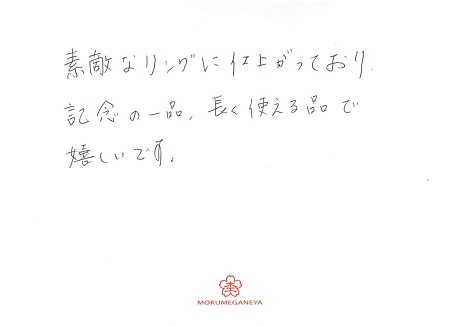 素敵なリングに仕上がっており、
記念の一品、長く使える品で
嬉しいです。
MOKUMEGANEYA